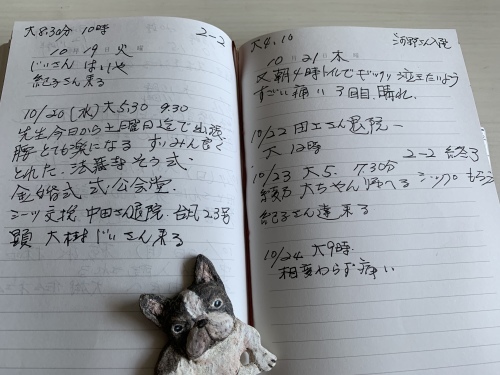 大8:30分 10時
2-2
10月19日火曜
じいさん はいしゃ
紀子さん来る
10/20(水)大5:30 9:30
先生今日から土曜日迄で出張
腰とても楽になる すいみん良く
とれた. 法蔵寺そう式.
金婚式 式公会堂.
シーツ交換. 中田さん退院. 台風23号
顕 大樹じいさん来る
大4,10
河野さん入院
10月21日木曜
又朝4時トイレでギックリ 泣きたいよう
すごい痛い 3回目. 晴れ.
10/22 田工さん退院一
大12時
2-2
10/23 大5. 7.30分
大ちゃん帰へる シップもらう
紀子さん達来る
10/24 大9時.
相変わらず痛い